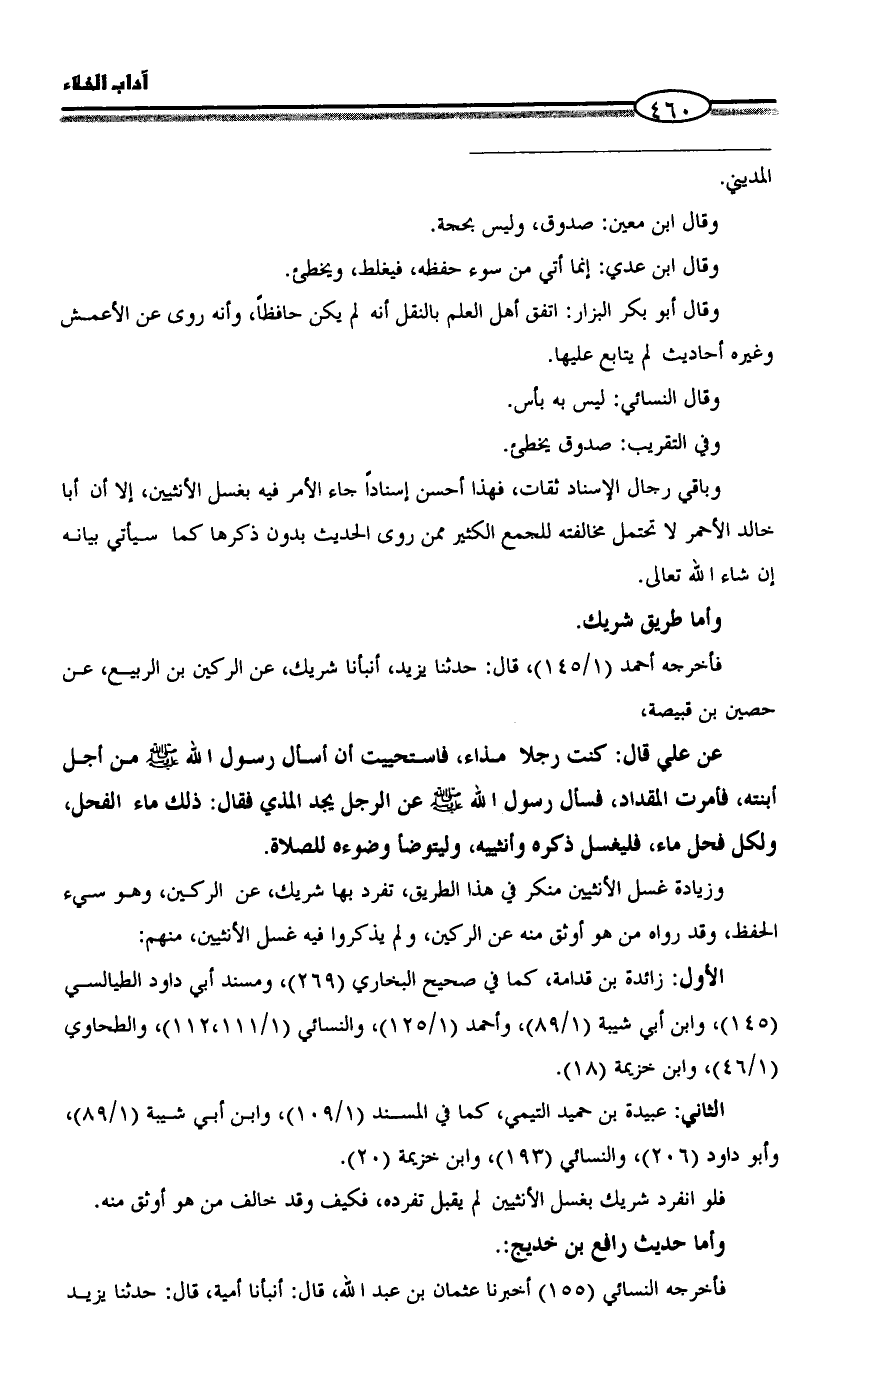 آداب الخلاء
٤٦٠
المديني.
وقال ابن معين: صدوق، وليس بحجة.
وقال ابن عدي: إنما أتي من سوء حفظه، فيغلط، ويخطئ.
وقال أبو بكر البزار: اتفق أهل العلم بالنقل أنه لم يكن حافظاً، وأنه روى عن الأعمش
وغيره أحاديث لم يتابع عليها.
وقال النسائي: ليس به بأس.
وفي التقريب: صدوق يخطئ.
وباقي رجال الإسناد ثقات، فهذا أحسن إسناداً جاء الأمر فيه بغسل الأنثيين، إلا أن أبا
خالد الأحمر لا تحتمل مخالفته للجمع الكثير ممن روى الحديث بدون ذكرها كما سيأتي بيانه
إن شاء الله تعالى.
وأما طريق شريك.
فأخرجه أحمد (١/١٤٥)، قال: حدثنا يزيد، أنبأنا شريك، عن الركين بن الربيع، عن
حصين بن قبيصة،
عن علي قال: كنت رجلا مذاء، فاستحييت أن أسأل رسول الله ﷺ من أجل
أبنته، فأمرت المقداد، فسأل رسول الله ﷺ عن الرجل يجد المذي فقال: ذلك ماء الفحل،
ولكل فحل ماء، فليغسل ذكره وأنثييه، وليتوضأ وضوءه للصلاة.
وزيادة غسل الأنثيين منكر في هذا الطريق، تفرد بها شريك، عن الركين، وهو سيء
الحفظ، وقد رواه من هو أوثق منه عن الركين، ولم يذكروا فيه غسل الأنثيين، منهم:
الأول: زائدة بن قدامة، كما في صحيح البخاري (٢٦٩)، ومسند أبي داود الطيالسي
(١٤٥)، وابن أبي شيبة (١/٨٩)، وأحمد (١/١٢٥)، والنسائي (١/١١١،١١٢)، والطحاوي
(١/٤٦)، وابن خزيمة (١٨).
الثاني: عبيدة بن حميد التيمي، كما في المسند (١/١٠٩)، وابن أبي شيبة (١/٨٩)،
وأبو داود (٢٠٦)، والنسائي (١٩٣)، وابن خزيمة (٢٠).
فلو انفرد شريك بغسل الأنثيين لم يقبل تفرده، فكيف وقد خالف من هو أوثق منه.
وأما حديث رافع بن خديج:.
فأخرجه النسائي (١٥٥) أخبرنا عثمان بن عبد الله، قال: أنبأنا أمية، قال: حدثنا يزيد